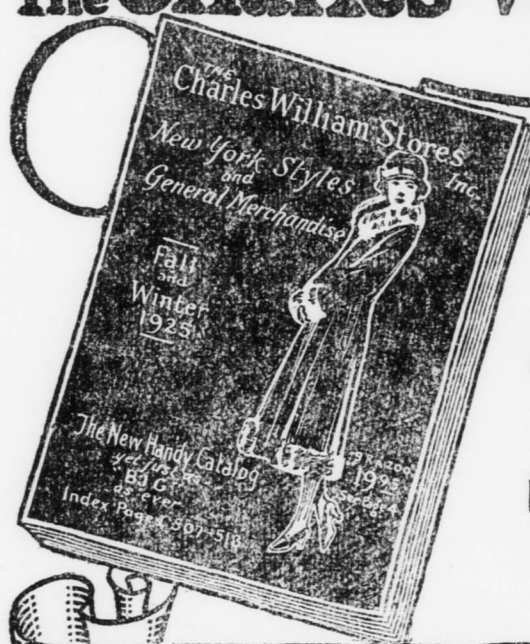 The Charles W
THE
Charles William Stores
Inc.
New York Styles
and
General Merchandise
Fall
and
Winter
1925
The New Handy Catalog
yet just as
BIG
as ever
Index Pages 507-518
19.95
See page 4